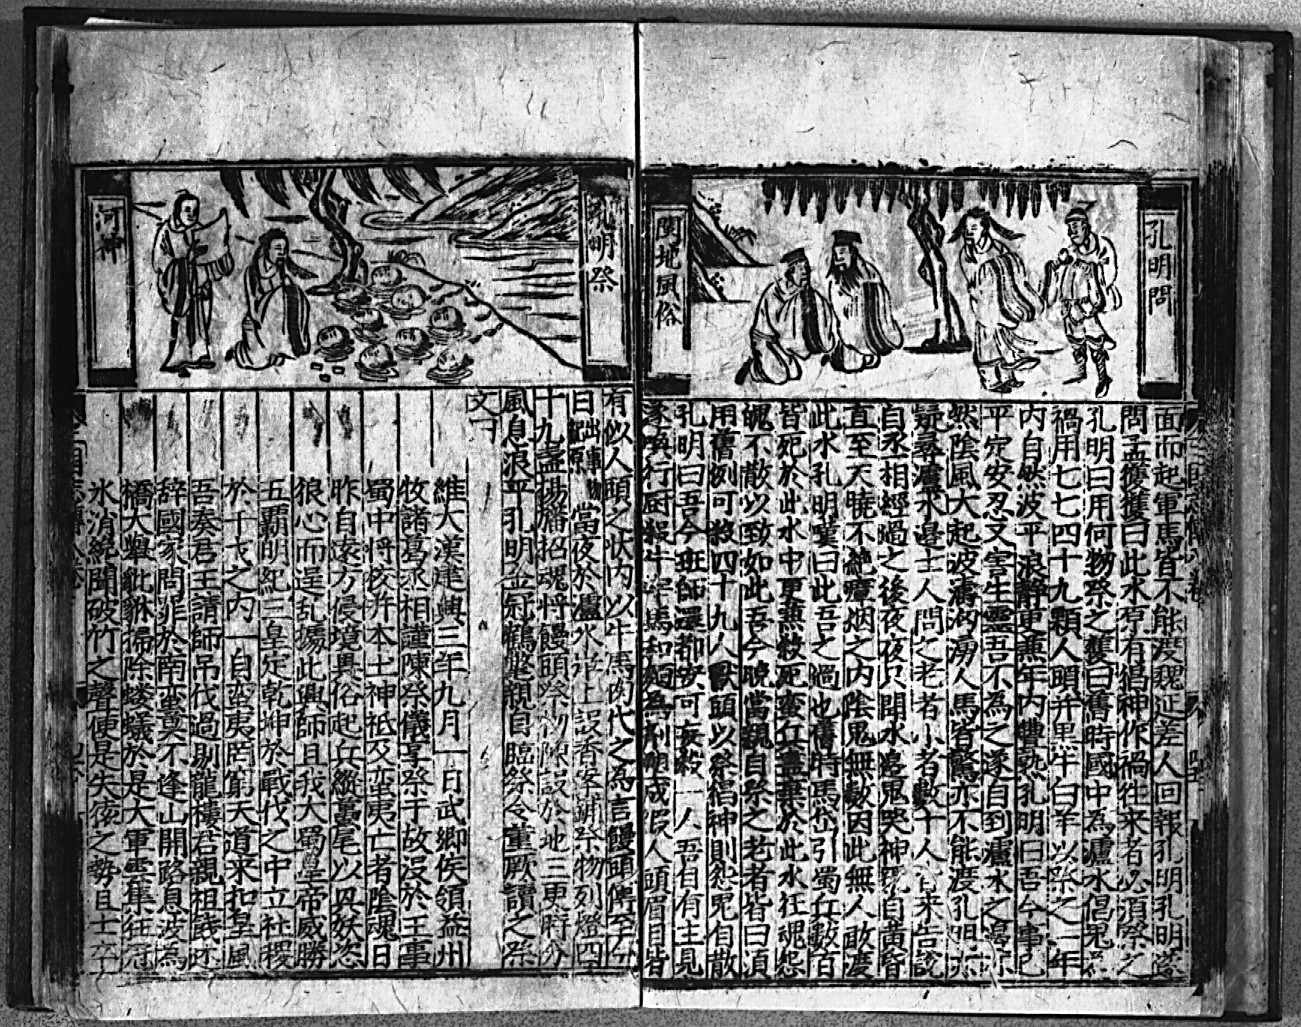 孔明問
閩地風俗
面而起軍馬皆不能渡魏延差人回報孔明孔明遂
問孟獲獲曰此水原有猖神作禍往來者必須祭之
孔明曰用何物祭之獲曰舊時國中為瀘水猖鬼
禍用七七四十九顆人頭并黑牛白羊以祭之二年
內自然波平浪靜更兼年內豊熟孔明曰吾今事已
平定安忍又害生靈吾不為之遂自到瀘水之邊
然陰風大起波濤洶湧人馬皆驚亦不能渡孔明
疑尋瀘水邊土人問之老者小者數十人皆來告說
自丞相經過之後夜夜只聞水邊鬼哭神號自黃昏
直至天曉不絕瘴烟之內陰鬼無數因此無人敢渡
此水孔明嘆曰此吾之過也舊時馬岱引蜀兵數百
皆死於此水中更兼殺死蠻兵盡棄於此水狂魂怨
魄不散以致如此吾今晚當親自祭之老者皆曰須
用舊例可殺四十九人獻頭以祭猖神則怨鬼自散
孔明曰吾今班師還都安可妄殺一人吾自有主見
遂喚行厨殺牛宰馬和麵為劑塑成假人頭眉目皆
孔明祭
河神
有似人頭之狀內以牛馬肉代之為言饅頭傳至今
日出事物紀原當夜於瀘水岸上設香案鋪祭物列燈四
十九盞揚旛招魂將饅頭祭物陳設於地三更時分
風息浪平孔明金冠鶴氅親自臨祭令董厥讀之祭
文曰
維大漢建興三年九月一日武鄉侯領益州
牧諸葛丞相謹陳祭儀享祭于故沒於王事
蜀中將校并本土神祗及蛮夷亡者陰魂曰
昨自遠方侵境異俗起兵縱蠆尾以興妖恣
狼心而逞乱
此興師且我大蜀皇帝威勝
五覇明紀三皇定乾坤於戰伐之中立社稷
於十弋之內一自蛮夷罔窮天道来扣皇風
吾奏君王請師吊伐過剔龍樓君親祖餞
辭國家問罪於南蠻莫不逢山開路息波為
橋大舉貔貅掃除螻蟻於是大軍雲集狂冦
氷消纔聞破竹之聲便是失猿之勢且士卒